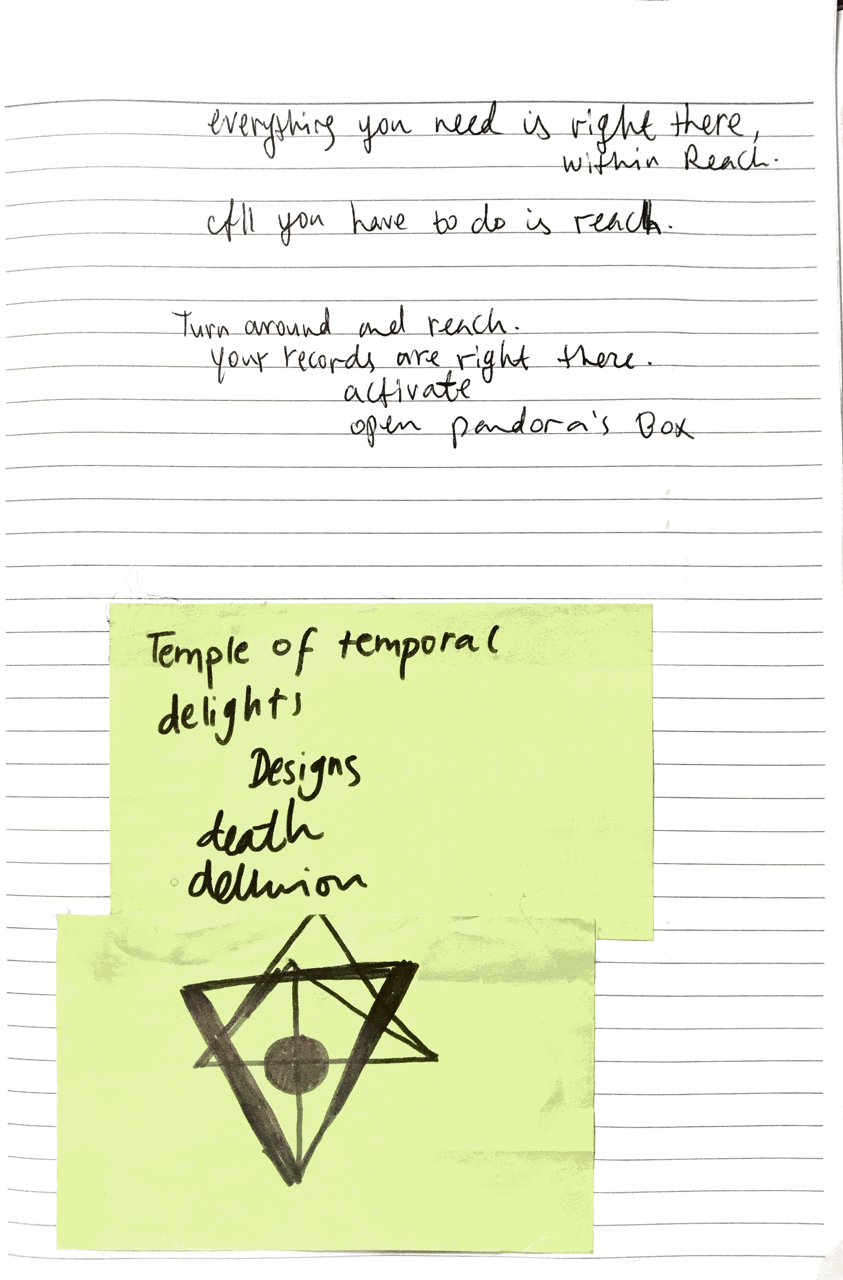 everything you need is right there,
within Reach.
All you have to do is reach.
Turn around and reach.
your records are right there.
activate
open pandora's Box
Temple of temporal
delights
Designs
death
delusion